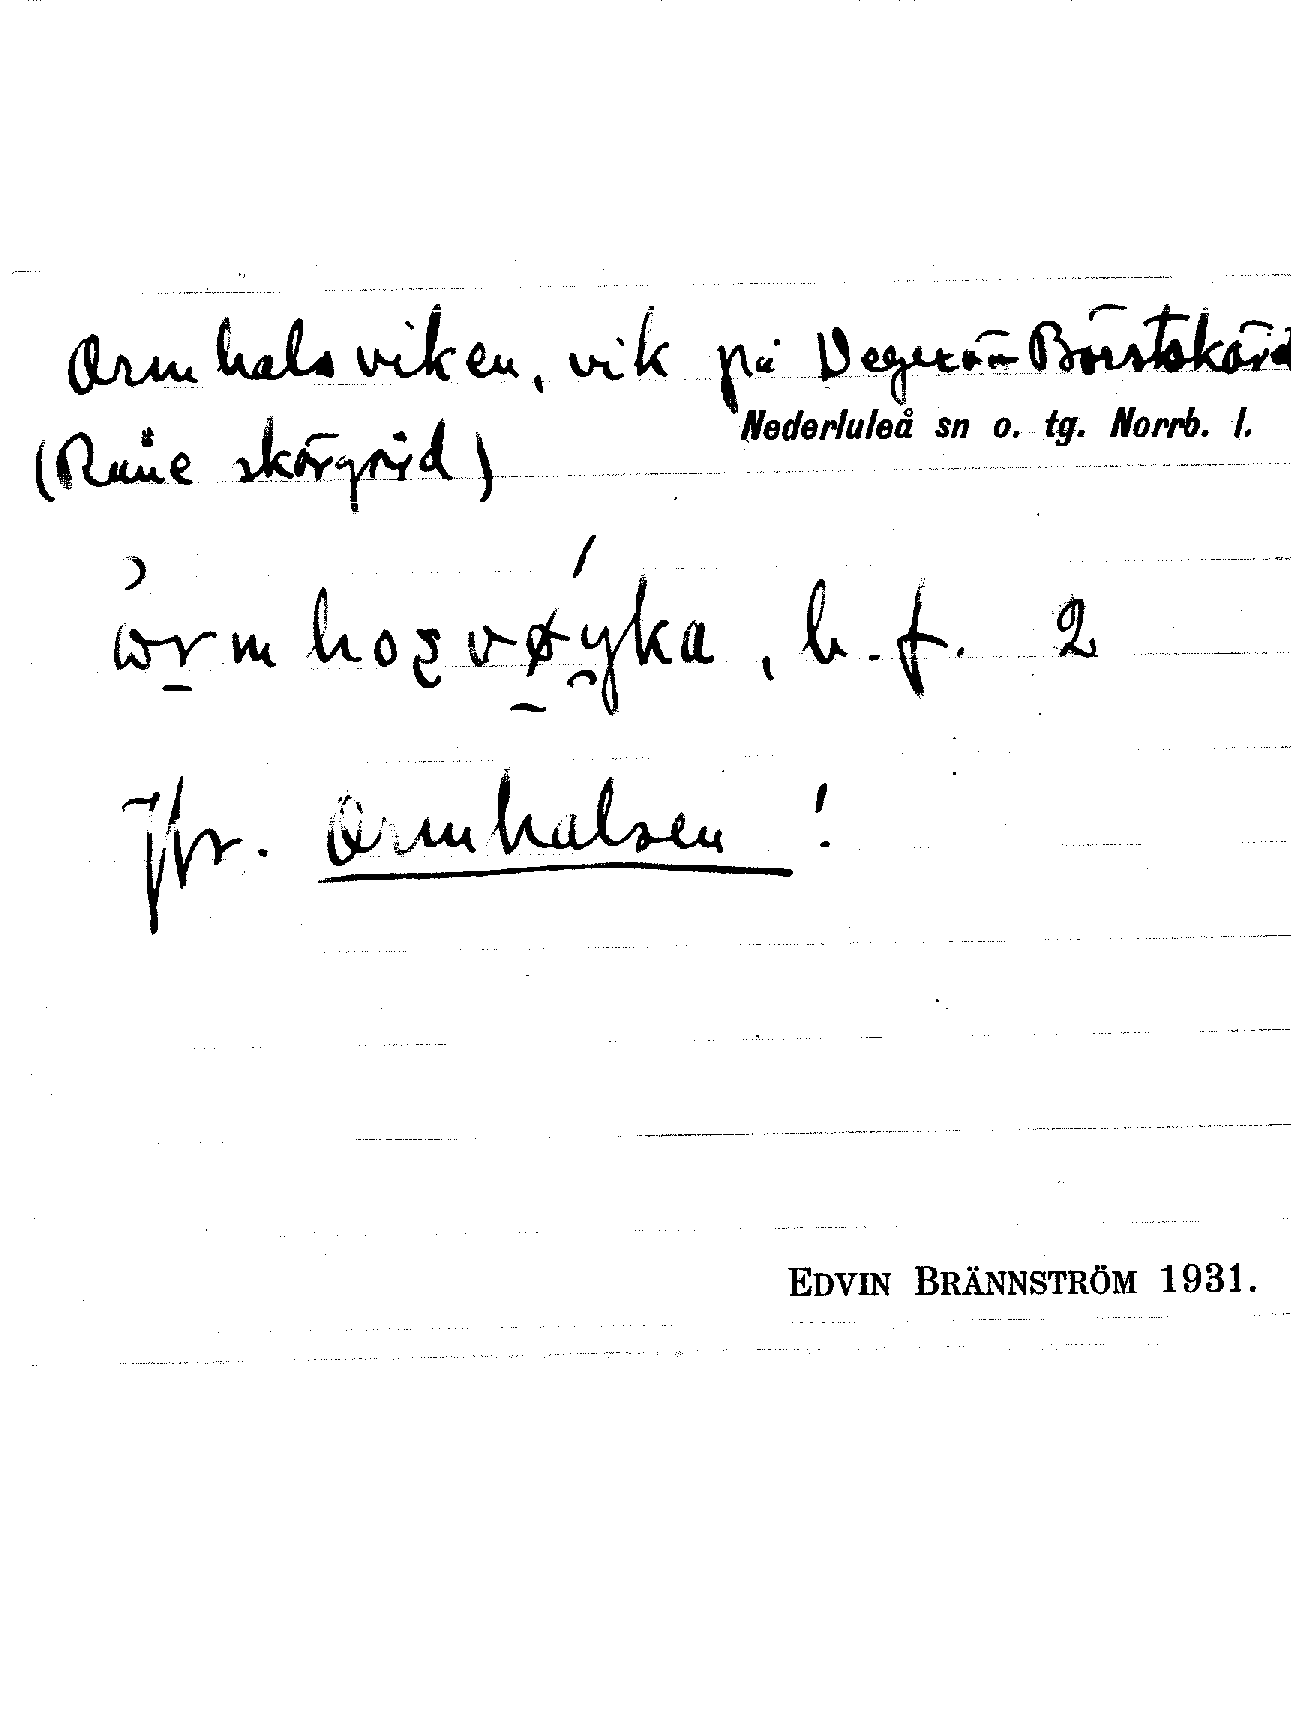 Ormhalsviken, vik på Degerön Börstskär
Nederluleå sn o. tg. Norrb. l.
(Råne skärgård)
b. f. 2
Jfr. Ormhalsen!
EDVIN BRÄNNSTRÖM 1931.